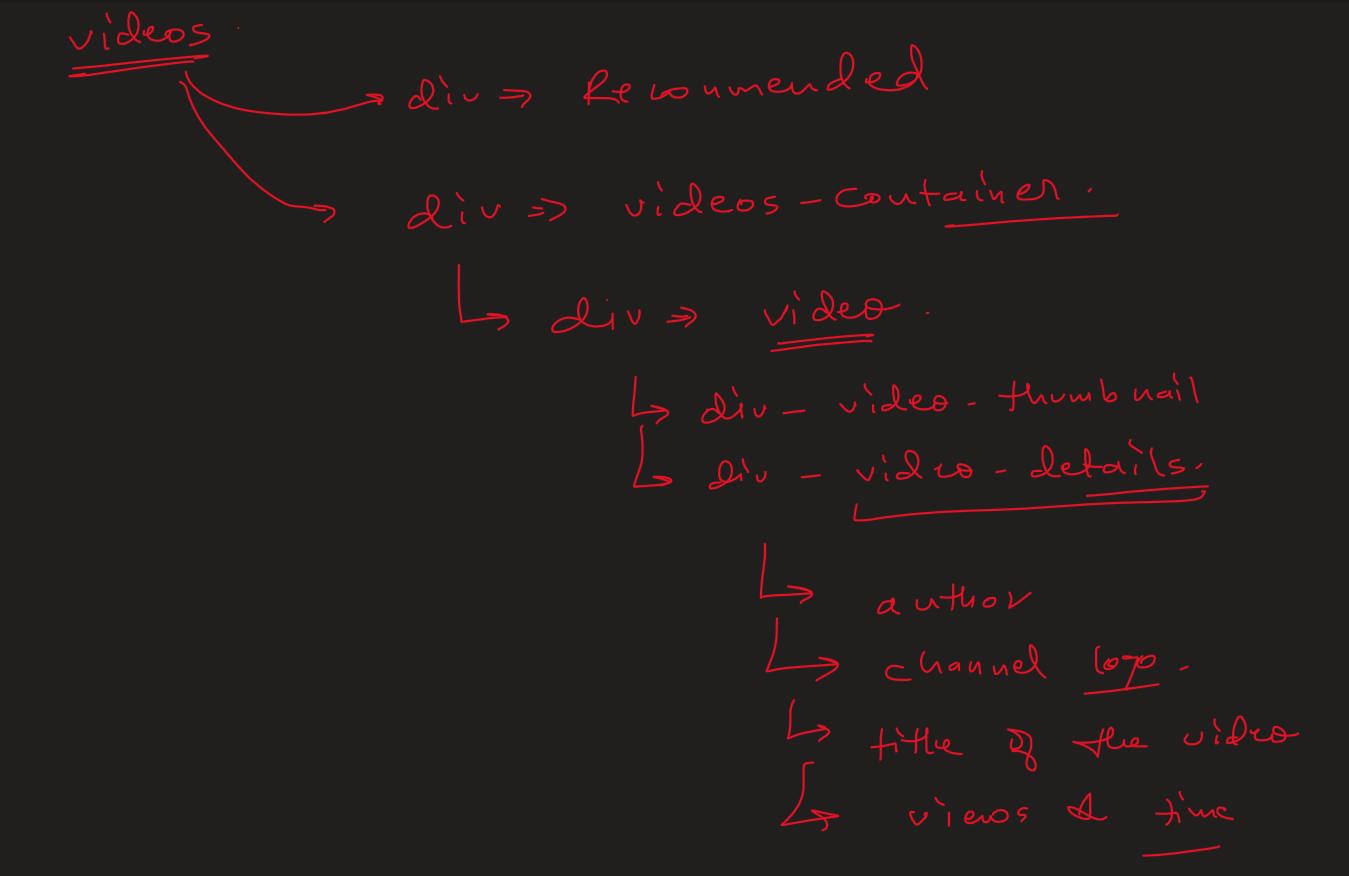 videos
div ⇒ Recommended
div ⇒ videos - container.
div ⇒ video.
div - video - thumbnail
div - video - details.
author
channel logo.
title of the video
views & time